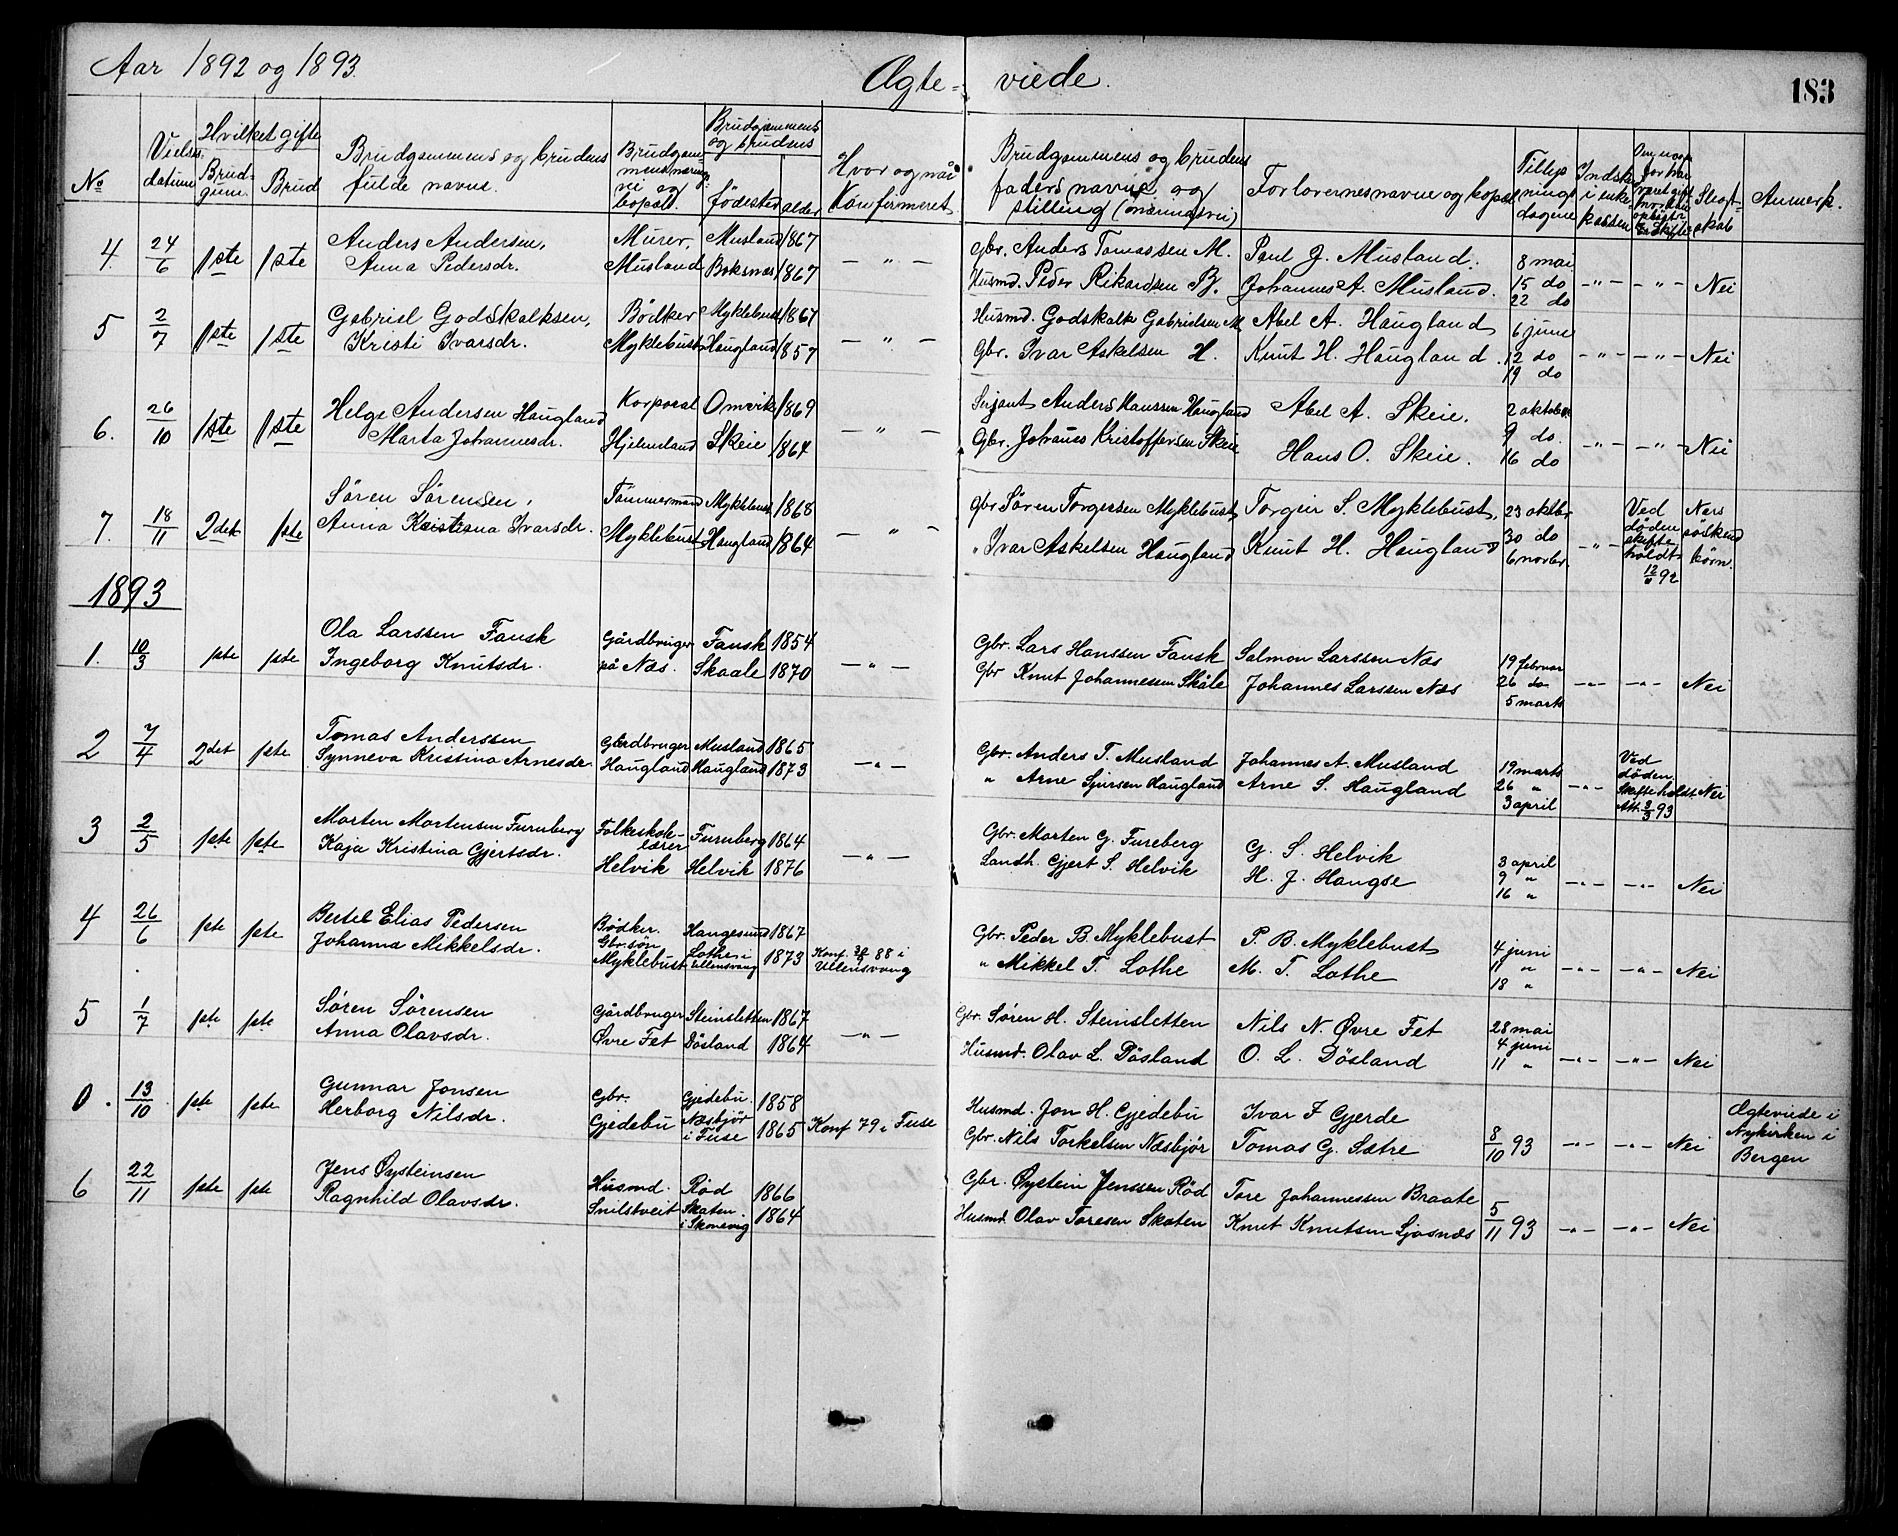 Aar 1892 og 1893.
Ægte- viede.
183
No
Vielses datum
Hvilket gifte
Brudgum. Brud
Brudgommens og brudens fulde navne.
Brudgommens næringsvei og bopæl.
Brudgommens og brudens
fødested alder
Hvor og når Konfirmeret.
Brudgommens og brudens faders navne og stilling (næringsvei)
Forlovernes navne og bopæl
Tillysningsdagene
Indsk. i enkekassen
Slegtskab
Anmerk.
4. 24/6 1ste 1ste Anders Andersen, Murer, Musland 1867 Gbr. Anders Tomassen M. Paul J. Musland. 8 mai
Anna Pedersdr. Musland Boksnæs 1867 — " — Husmd. Peder Rikardsen B. Johannes A. Musland. 15 do — " — — " — Nei
22 do
5 2/7 1ste 1ste Gabriel Godskalksen, Bödker Myklebust 1867 Husmd. Godskalk Gabrielsen M. Abel A. Haugland 6 june
Kristi Ivarsdr. Myklebust Haugland 1857 — " — Gbr. Ivar Askelsen H. Knut H. Haugland. 12 do — " — — " — Nei
19 do
6. 26/10 1ste 1ste Helge Andersen Haugland Korporal Omvik 1869 Serjant Anders Hanssen Haugland Abel A. Skeie. 2 oktober
Marta Johannesdr. Hjelmeland Skeie 1864 — " — Gbr. Johanes Kristoffersen Skeie Hans O. Skeie. 9 do. — " — — " — Nei
16 do
7. 18/11 2det 1ste Søren Sørensen, Tømmermand Myklebust 1868 Gbr Søren Torgersen Myklebust Torgeir S. Myklebust, 23 oktbr Ved døden skifte holdt 92 Nærs
Anna Kristina Ivarsdr. Myklebust Haugland 1864 — " — " Ivar Askelsen Haugland Knut H. Haugland 30 do — " — söskend
6 novbr. börn.
1893
1. 10/3 1ste 1ste Ola Larssen Fausk Gårdbruger Fausk 1854 Gbr. Lars Hanssen Fausk Salmon Larssen Næs 19 februar
Ingeborg Knutsdr. på Næs. Skaale 1870 — " — Gbr Knut Johannessen Skåle Johannes Larssen Næs 26 do — " — — " — Nei
5 marts
2 7/4 2det 1ste Tomas Anderssen Gårdbruger Musland 1865 Gbr. Anders T. Musland Johannes A. Musland 19 marts Ved døden
Synneva Kristina Arnesdr. Haugland Haugland 1873 — " — " Arne Sjursen Haugland Arne S. Haugland 26 " — " — Skifte holdt Nei
3 april 93
3 2/5 1ste 1ste Morten Mortensen Furuberg Folkeskolelærer Furuberg 1864 Gbr. Morten G. Fureberg G. S. Helvik
Kaja Kristina Gjertsdr. Helvik Helvik 1876 — " — Landh. Gjert S. Helvik H. J. Haugse 3 april
9 " — " — — " — Nei
16 "
4 26/6 1ste 1ste Bertel Elias Pedersen Bødker. Haugesund 1867 Gbr. Peder B. Myklebust P. B. Myklebust 4 juni
Johanna Mikkelsdr. Gbr.søn Myklebust Lothe i Ullensvang 1873 Konf. 88 i Ullensvang " Mikkel T. Lothe M. T. Lothe 11 " — " — — " — Nei
18 "
5 1/7 1ste 1ste Søren Sørensen Gårdbruger Steinsletten 1867 Gbr. Søren H. Steinsletten Nils N. Øvre Fet 28 mai
Anna Olavsdr. Øvre Fet Døsland 1864 — " — Husmd. Olav L. Døsland O. L. Døsland 4 juni
11 " — " — — " — Nei
0. 13/10 1ste 1ste Gunnar Jonsen Gbr. Gjedebu. 1858 Husmd. Jon H. Gjedebu Ivar I Gjerde Ægteviede i
Herborg Nilsdr. Gjedebu Næsbjör i Fuse 1865 Konf 79 i Fuse Gbr. Nils Torkelsen Næsbjør Tomas G. Sætre 8/10 93 — " — — " — Nei Nykirken i
Bergen
6 22/11 1ste 1ste Jens Øysteinsen Husmd. Rød 1866 Gbr. Øystein Jenssen Rød Tore Johannessen Braate
Ragnhild Olavsdr. Snilstveit Skaten i Skonevig 1864 Husmd. Olav Toresen Skaten Knut Knutsen Ljosnæs 5/11 93 — " — — " — Nei